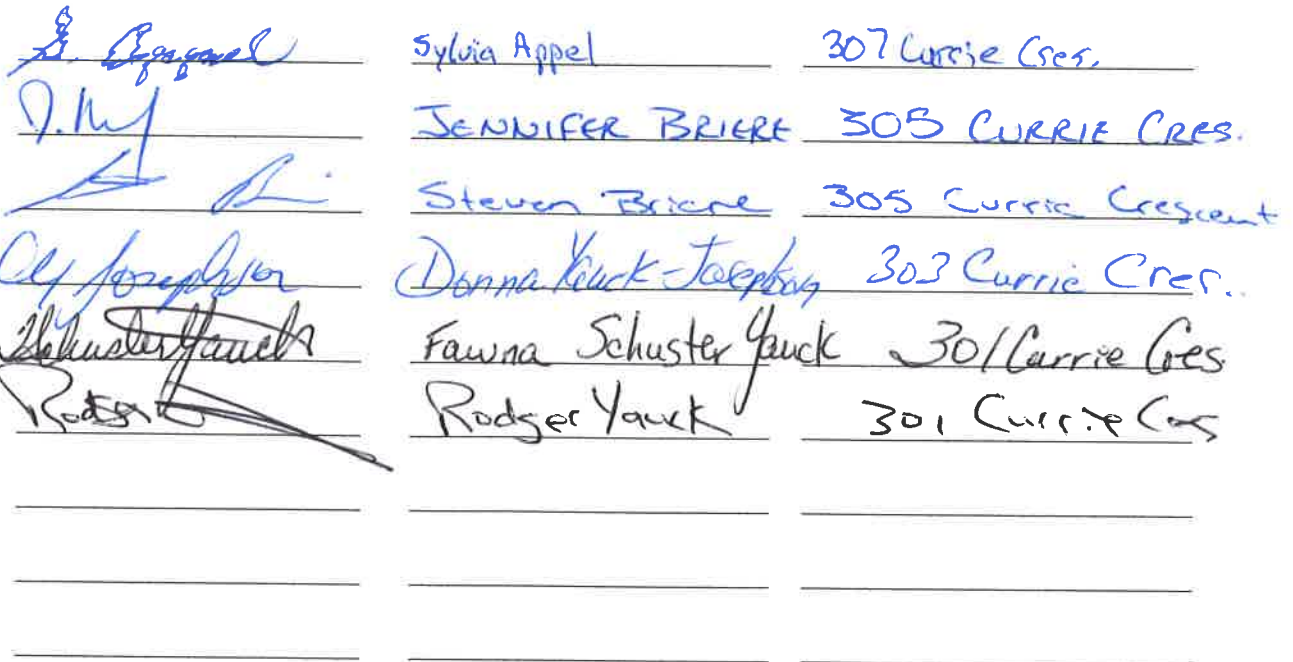 S. Appel Sylvia Appel 307 Currie Cres.
JENNIFER BRIERE 305 CURRIE CRES.
Steven Briere 305 Currie Crescent
Josephson Donna Yauck-Josephson 303 Currie Cres.
Schuster Yauck Fawna Schuster Yauck 301 Currie Cres
Rodger Rodger Yauck 301 Currie Cres